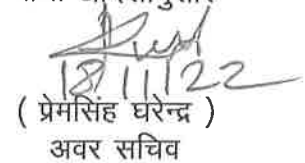 18/11/22
( प्रेमसिंह घरेन्द्र )
अवर सचिव